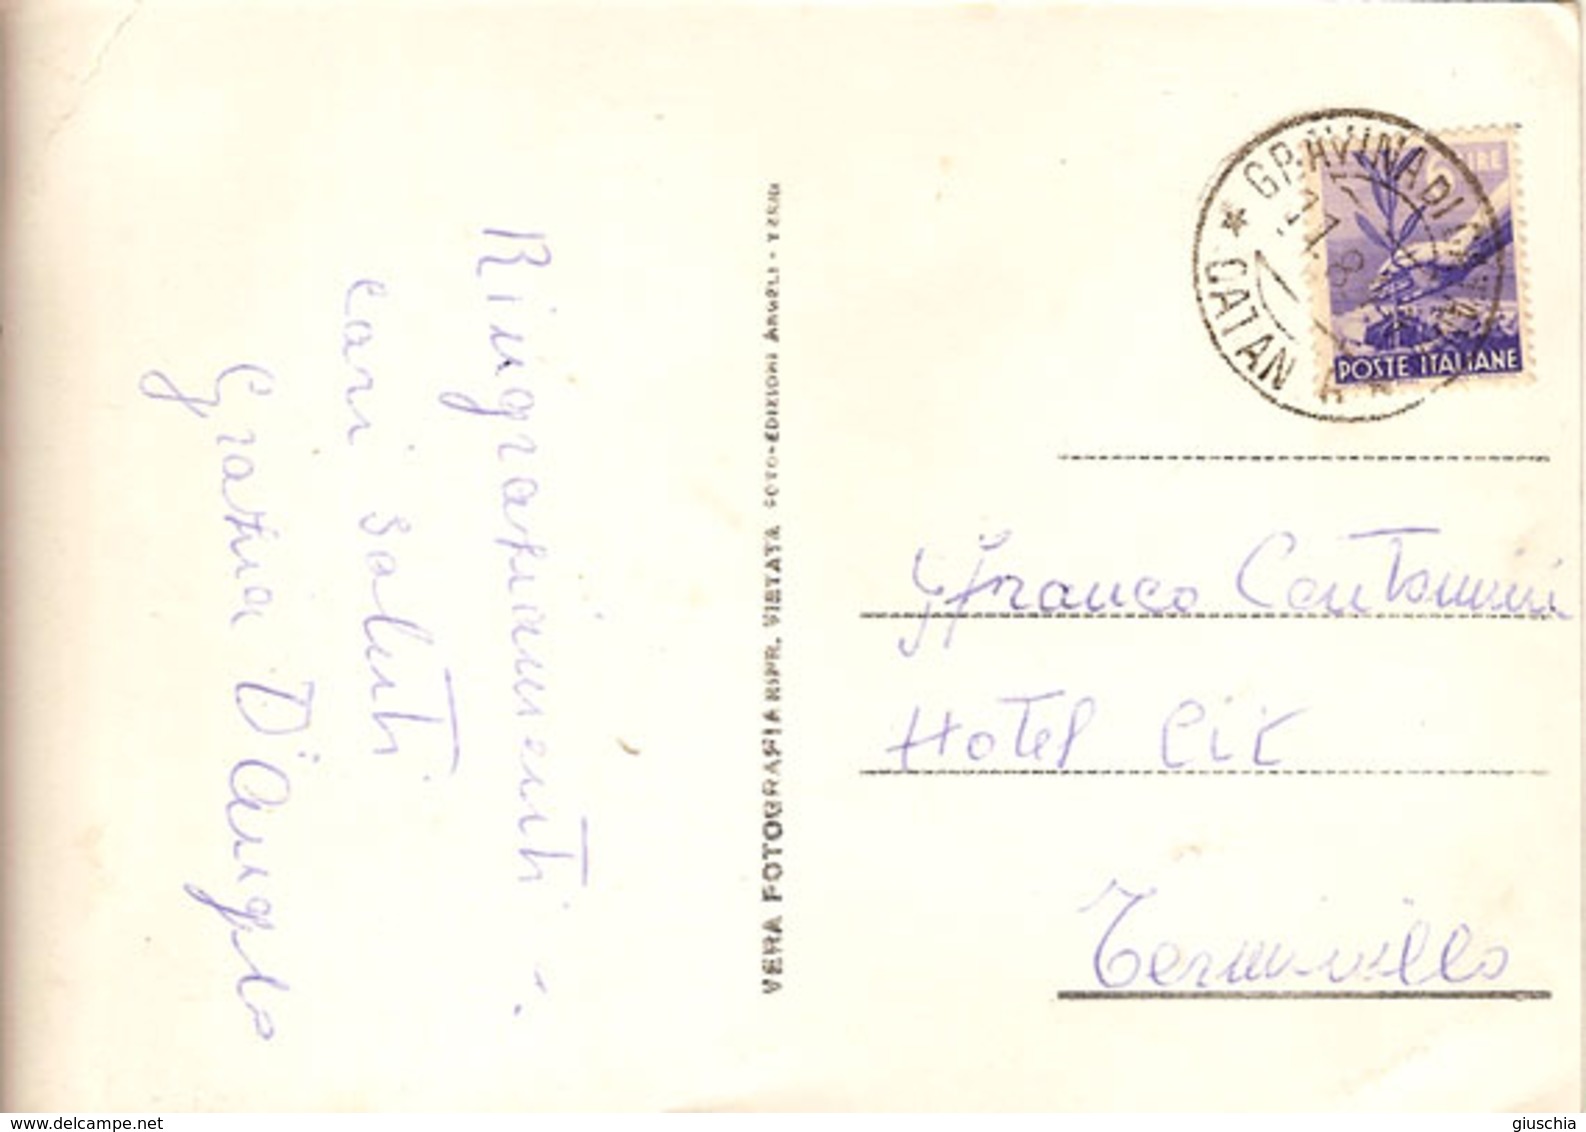 Ringraziamenti e
cari saluti
Grazia D'Angelo
VERA FOTOGRAFIA RIPR. VIETATA FOTO-EDIZIONI ANGELI - TERNI
* GRAVINA DI CATANIA
CATANIA
LIRE
POSTE ITALIANE
Franco
Hotel
Terminillo
www.delcampe.net
giuschia